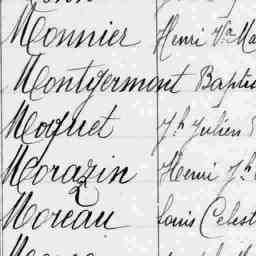 Monnier Henri Va Ma
Montgermont Baptis
Moquet Jh Julien
Morazin Henri Jh
Moreau Louis Celest